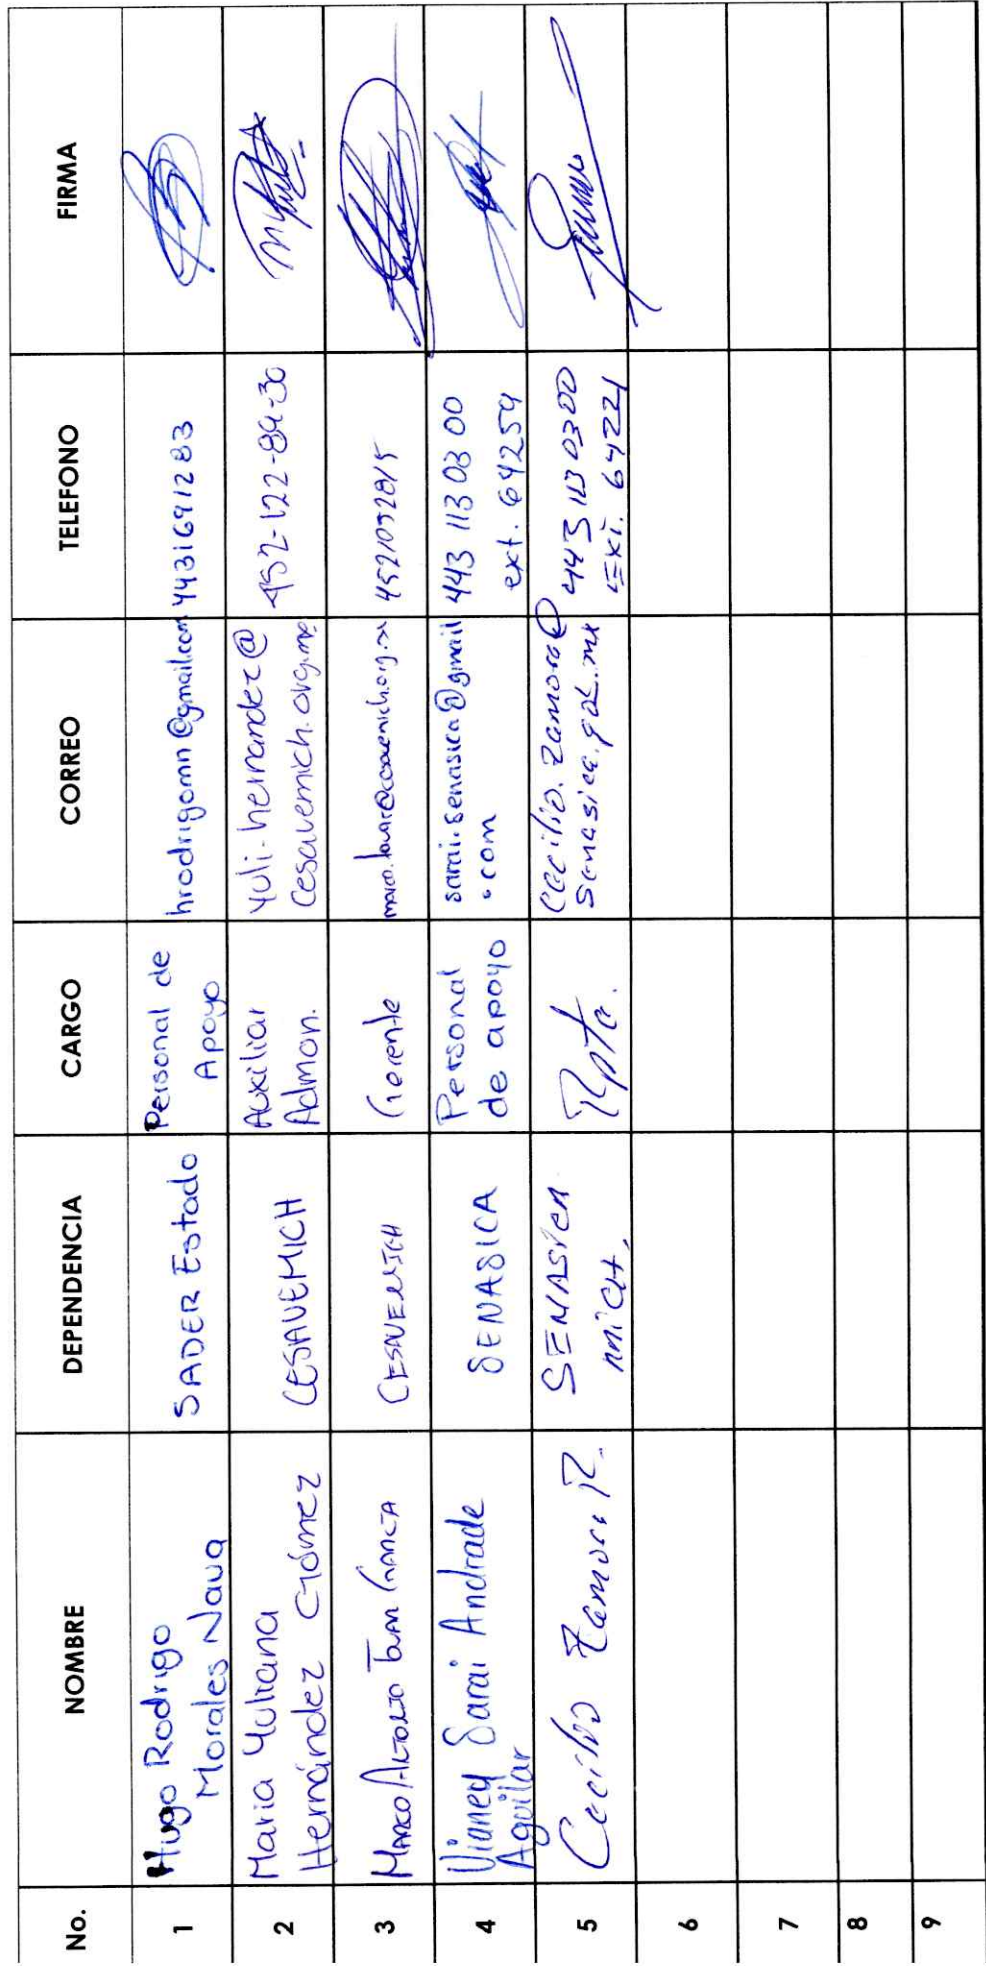 No. NOMBRE DEPENDENCIA CARGO CORREO TELEFONO FIRMA
1 Hugo Rodrigo
Morales Nava
SADER Estado
Personal de
Apoyo
hrodrigomn@gmail.com
4431691283
2 Maria Yuliana
Hernández Gómez
CESAVEMICH
Auxiliar
Admon.
yuli-hernandez@
cesavemich.org.mx
452-122-84-30
3 Marco Antonio Tovar García
CESAVEMICH
Gerente
4521092815
4 Vianey Sarai Andrade
Aguilar
SENASICA
Personal
de apoyo
sarai.senasica@gmail
.com
443 113 03 00
ext. 64259
5 Cecilio Zamora R.
SENASICA
MICH.
Rpte.
Cecilio.Zamora@
Senasica.gob.mx
443 113 0300
Ext. 64221
6
7
8
9